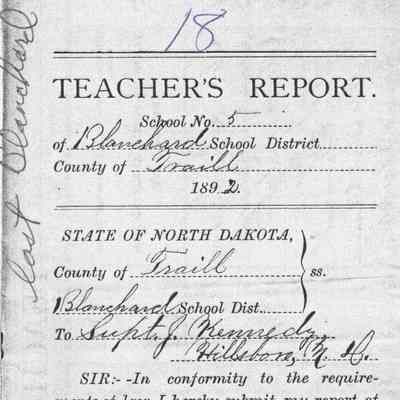 18
TEACHER'S REPORT.
School No. 5
of Blanchard School District
County of Traill
1892.
STATE OF NORTH DAKOTA,
County of Traill ss.
Blanchard School Dist.
To Supt. J. Kennedy,
Hillsboro, N. D.
SIR:--In conformity to the require-
ments of law I hereby submit my report of
Blanchard